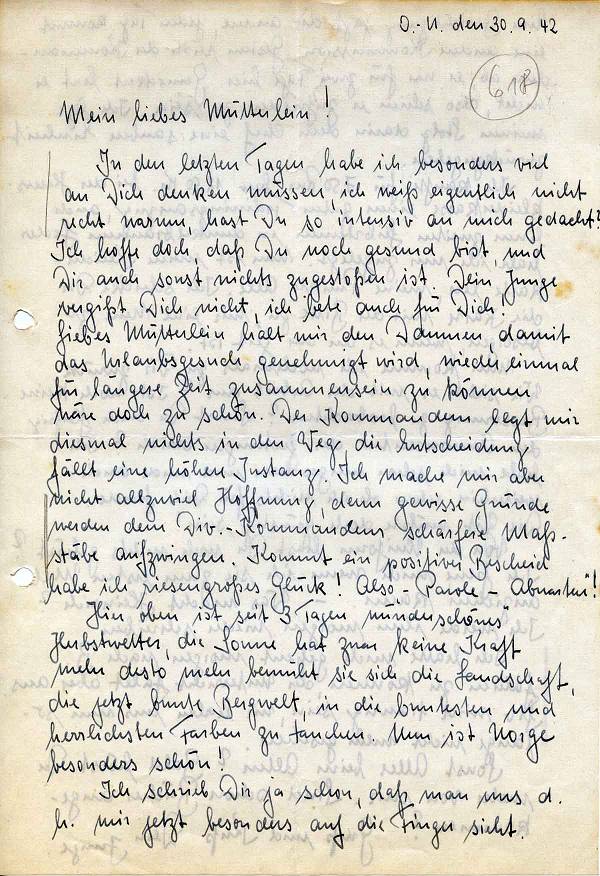 O.-U. den 30.9.42
618
Mein liebes Mütterlein!
In den letzten Tagen habe ich besonders viel
an Dich denken müssen, ich weiß eigentlich nicht
recht warum, hast Du so intensiv an mich gedacht?
Ich hoffe doch, daß Du noch gesund bist, und
Dir auch sonst nichts zugestoßen ist. Dein Junge
vergißt Dich nicht, ich bete auch für Dich!
Liebes Mütterlein halt mir den Daumen, damit
das Urlaubsgesuch genehmigt wird, wieder einmal
für längere Zeit zusammensein zu können
wäre doch zu schön. Der Kommandeur legt mir
diesmal nichts in den Weg, die Entscheidung
fällt eine höhere Instanz. Ich mache mir aber
nicht allzuviel Hoffnung, denn gewisse Gründe
werden dem Div.-Kommandeur schärfere Maß-
stäbe aufzwingen. Kommt ein positiver Bescheid
habe ich riesengroßes Glück! Also - Parole - Abwarten"!
Hier oben ist seit 3 Tagen wunderschönes
Herbstwetter, die Sonne hat zwar keine Kraft
mehr desto mehr bemüht sie sich die Landschaft,
die jetzt bunte Bergwelt, in die buntesten und
herrlichsten Farben zu tauchen. Nun ist Norge
besonders schön!
Ich schrieb Dir ja schon, daß man uns d.
h. mir jetzt besonders auf die Finger sieht.